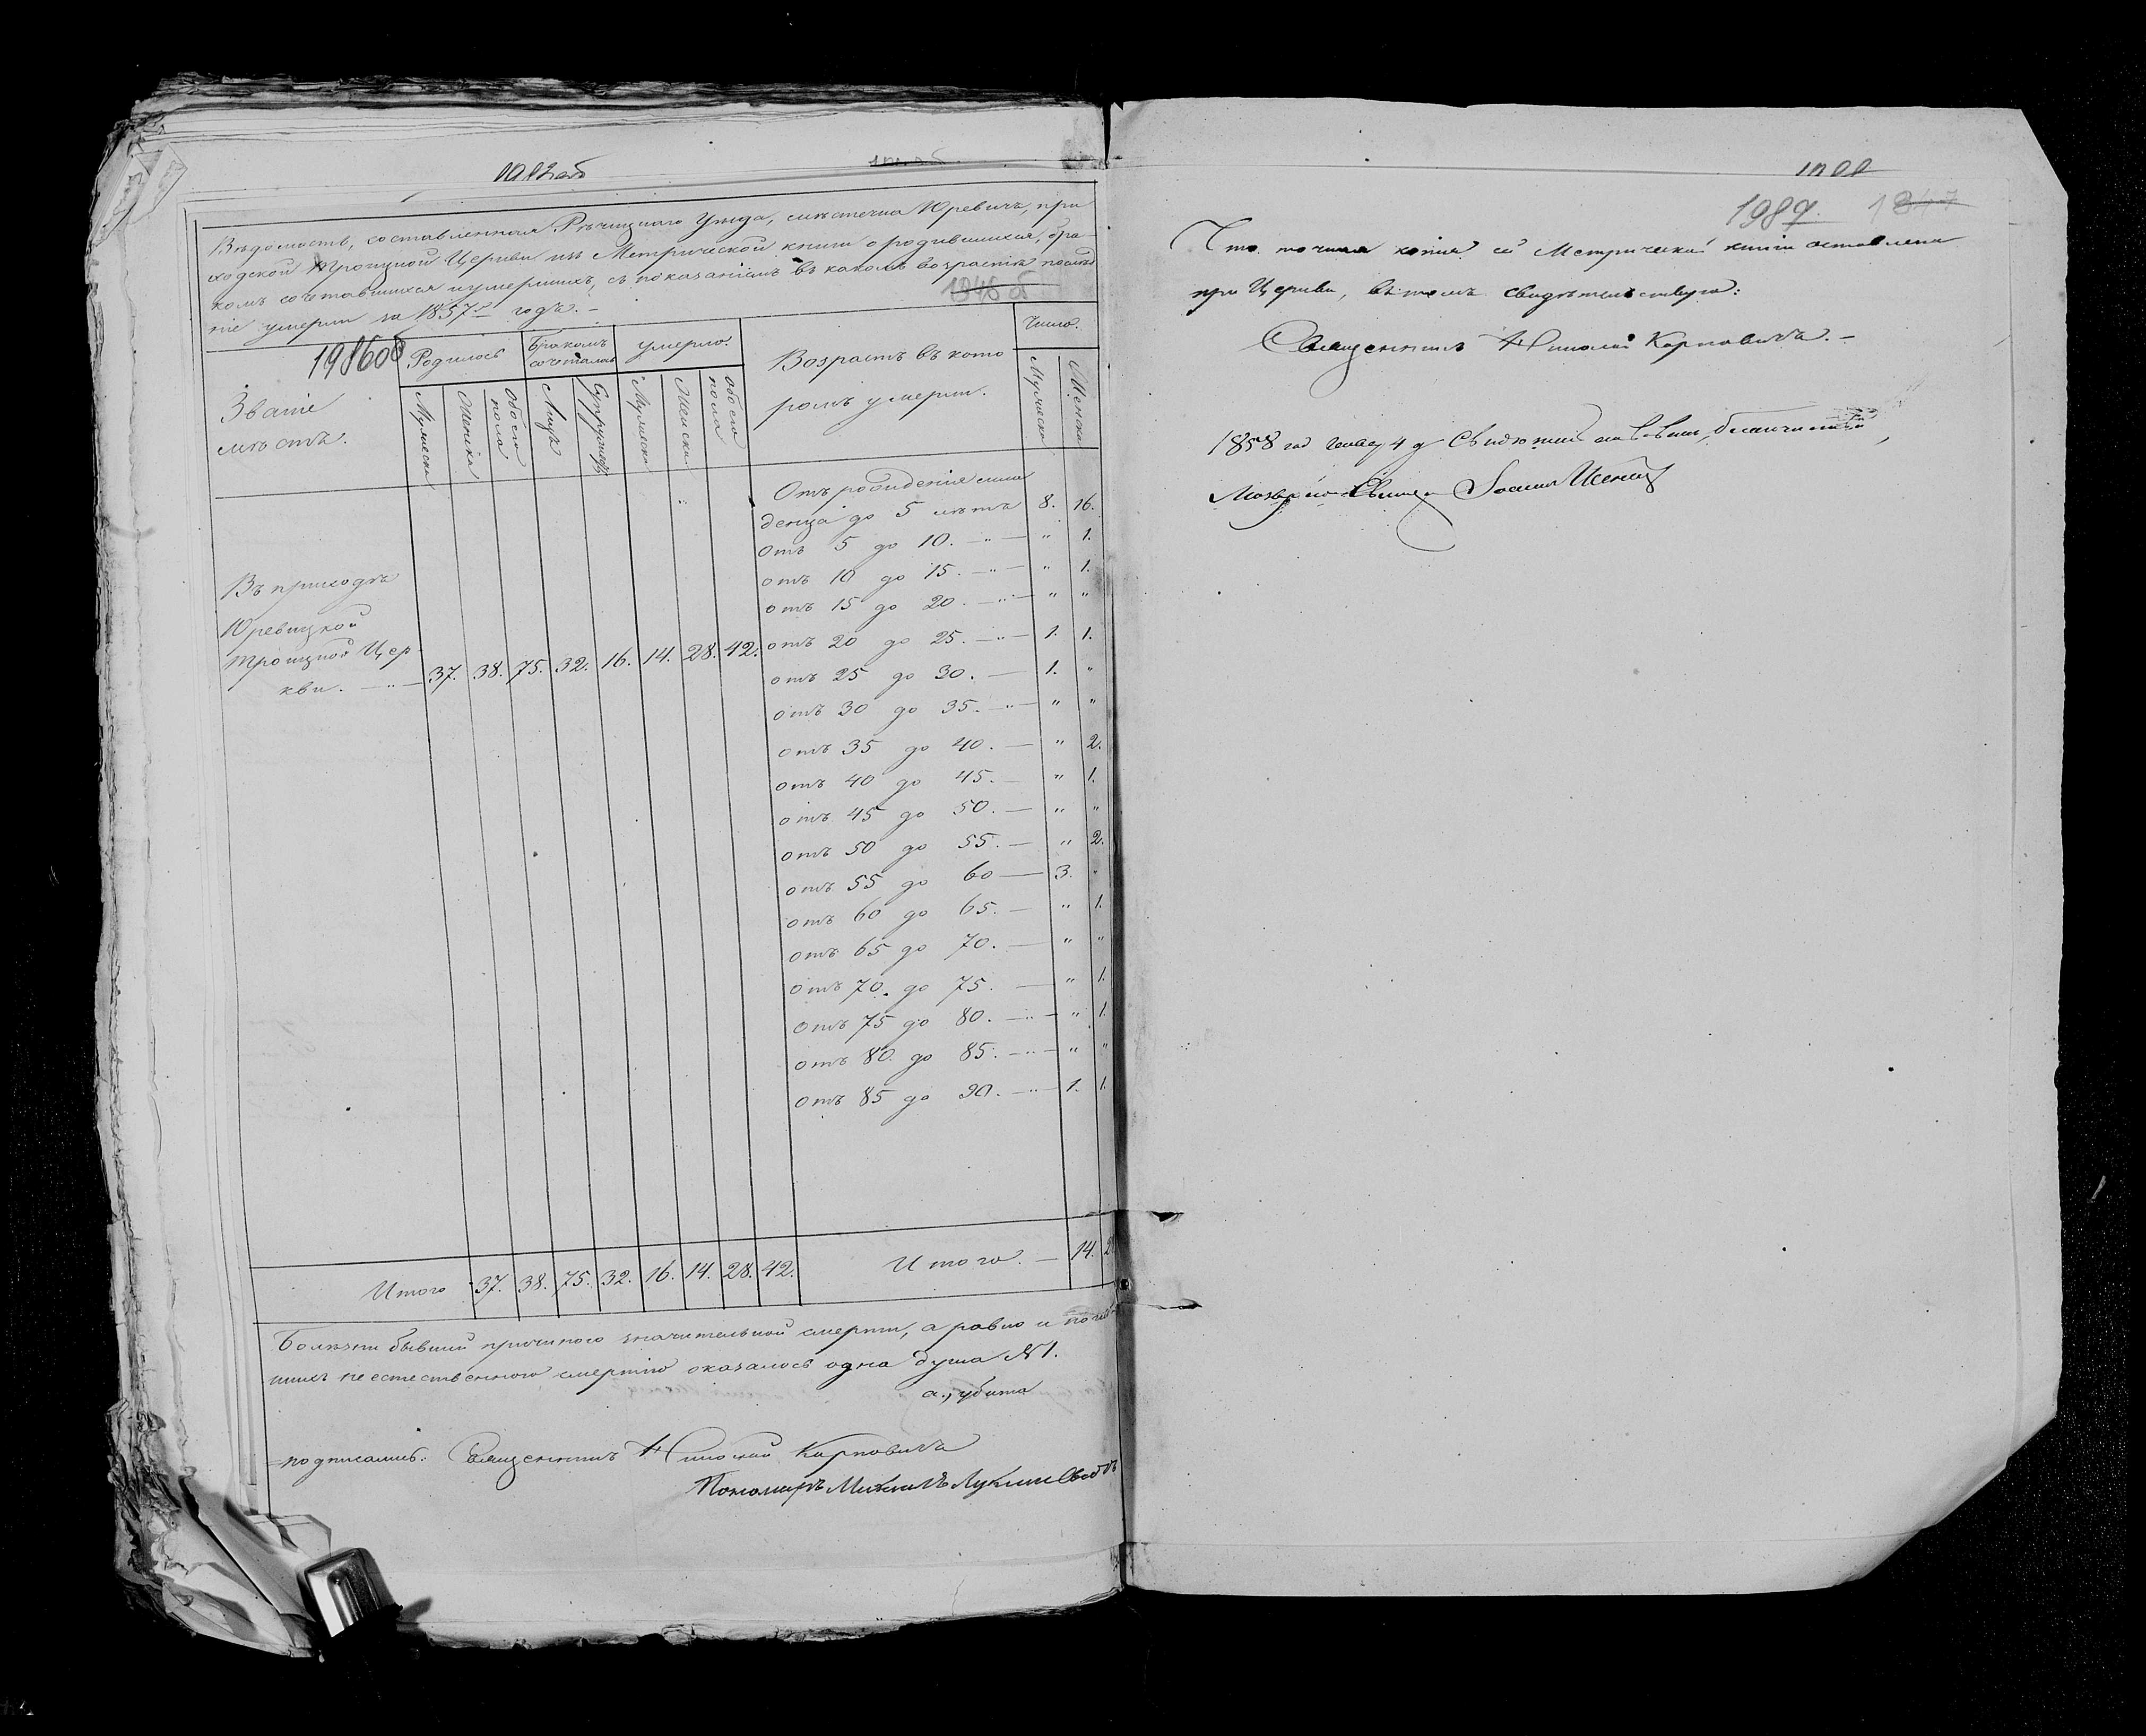 Вѣдомость, составленная Рѣчицкаго Уѣзда, мѣстечка Юревичъ, при
ходской Троицкой Церкви изъ Метрической книги о родившихся, бра
комъ сочетавшихся и умершихъ, съ показаніемъ въ какомъ возрастѣ послѣд
ніе умерли за 1857 годъ. –
1946 об
1986 об
Званіе мѣстъ.
Родилось
Бракомъ сочеталось
умерло.
Возрастъ въ кото
ромъ умерли.
Число.
Мужеска
Женска
Обоего пола
Лицъ
Супружествъ
Мужеска
Женска
Обоего пола
Мужеска
Женска
Отъ рожденія мла
денца до 5 лѣтъ 8. 16.
отъ 5 до 10. — " — " 1.
отъ 10 до 15. — " — " 1.
отъ 15 до 20. — " — " "
отъ 20 до 25. — " — 1. 1.
отъ 25 до 30. — 1. "
отъ 30 до 35. — " — " "
отъ 35 до 40. — " 2.
отъ 40 до 45. — " 1.
отъ 45 до 50. — " "
отъ 50 до 55. — " 2.
отъ 55 до 60 — 3. "
отъ 60 до 65. — " 1.
отъ 65 до 70. — " "
отъ 70. до 75. — " 1.
отъ 75 до 80. — " — " 1.
отъ 80. до 85. — " — " "
отъ 85 до 90. — " — 1. 1.
Въ приходѣ
Юревицкой
Троицкой Цер
кви. — " — 37. 38. 75. 32. 16. 14. 28. 42.
Итого 37. 38. 75. 32. 16. 14. 28. 42. Итого. — 14.
Болѣзни бывшей причиною значительной смерти, а равно и
шихъ неестественною смертію оказалось одна душа №1.
а., убита
подписали: Священникъ Николай Карповичъ
Пономарь Михаилъ
1987. 1947
Что точная копія сей Метрической книги оставлена
при Церкви, въ томъ свидѣтельствую:
Священникъ Николай Карповичъ. –
1858 год 4 д
Іоаннъ